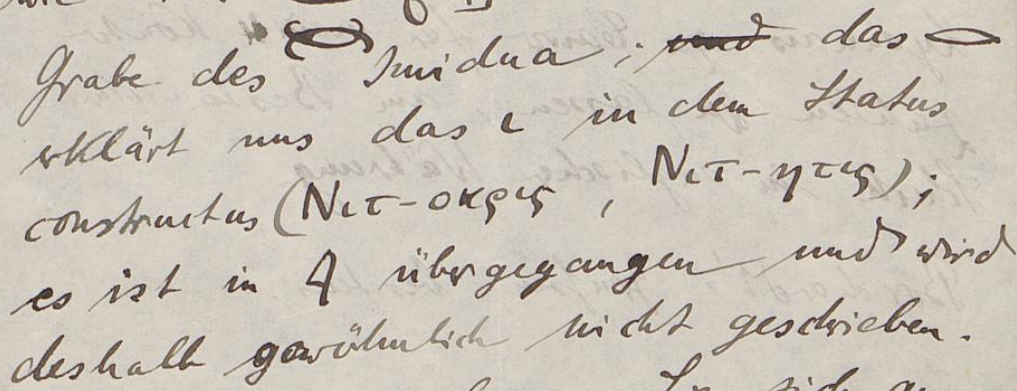 Grabe des Smidua; und das 𓂋
erklärt uns das ι in dem Status
constructus (Νιτ-οκρις, Νιτ-ητις);
es ist in 𓇋 übergegangen und wird
deshalb gewöhnlich nicht geschrieben.